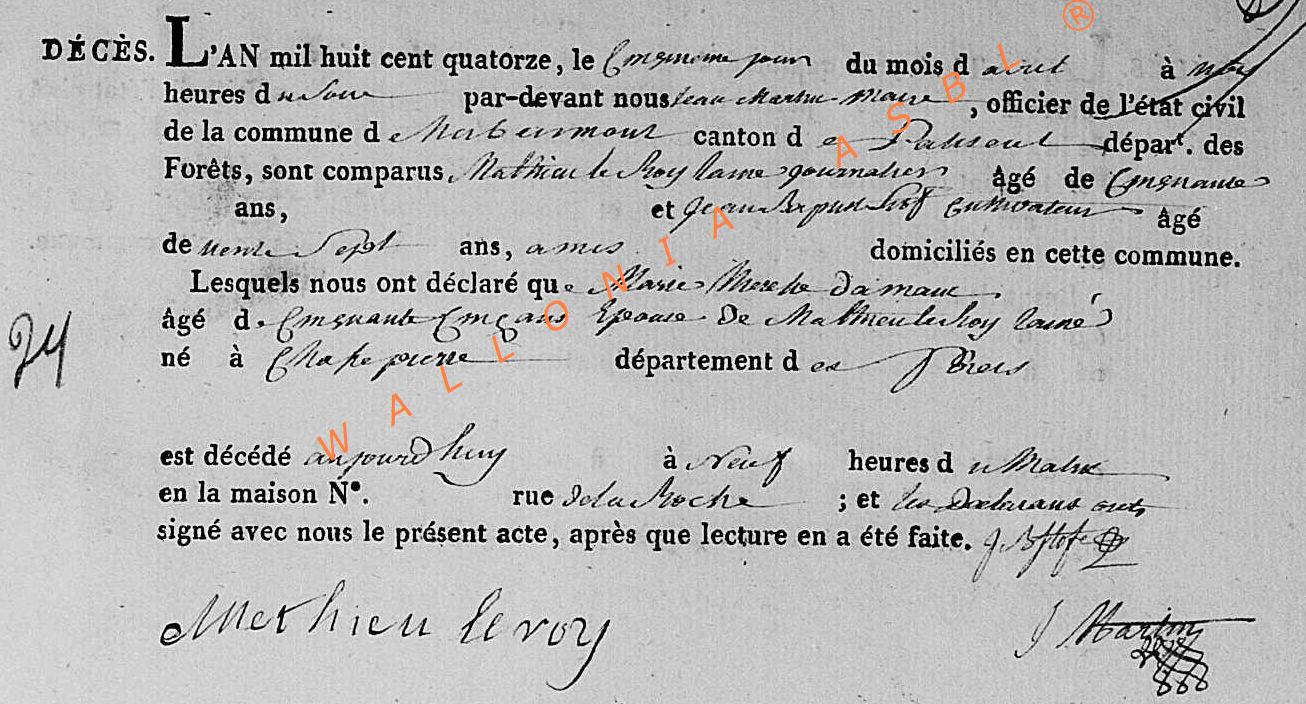 DÉCÈS. L'AN mil huit cent quatorze, le Cinquieme jour du mois d avril à
heures du Soir par-devant nous Jean Martin Maire, officier de l'état civil
de la commune d canton de Paliseul départ. des
Forêts, sont comparus Mathieu le Roy laine journalier âgé de Cinquante
ans, et Jean cultivateur âgé
de trente Sept ans, amis domiciliés en cette commune.
Lesquels nous ont déclaré que Marie
âgé de Cinquante Cinq ans Epouse De Mathieu le Roy lainé
né à département des
est décédé aujourdhuy à Neuf heures du Matin
en la maison N°. rue de la Roche ; et les Declarans ont
signé avec nous le présent acte, après que lecture en a été faite.
Methieu leroy
J Martin
24
WALLONIA ASBL ®